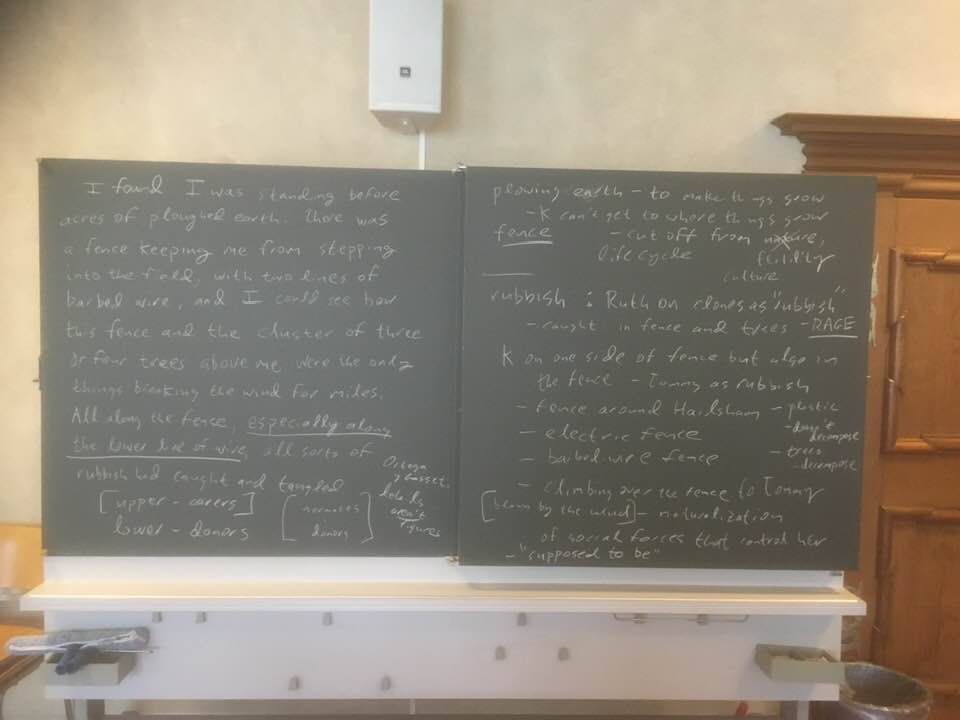 I found I was standing before
acres of ploughed earth. There was
a fence keeping me from stepping
into the field, with two lines of
barbed wire, and I could see how
this fence and the cluster of three
or four trees above me were the only
things breaking the wind for miles.
All along the fence, especially along
the lower line of wire, all sorts of
rubbish had caught and tangled
[upper - carers]
lower - donors
[normales
donors]
Ortega
y Gasset.
details
aren't
figures
JBL
plowing earth - to make things grow
- K can't get to where things grow
fence - cut off from nature,
life cycle fertility
culture
rubbish : Ruth on clones as "rubbish"
- caught in fence and trees - RAGE
K on one side of fence but also in
the fence - Tommy as rubbish
- fence around Hailsham - plastic
- doesn't
decompose
- electric fence
- trees
- decompose
- barbed wire fence
- climbing over the fence to Tommy
[beaten by the wind] - naturalization
of social forces that control her
- "supposed to be"